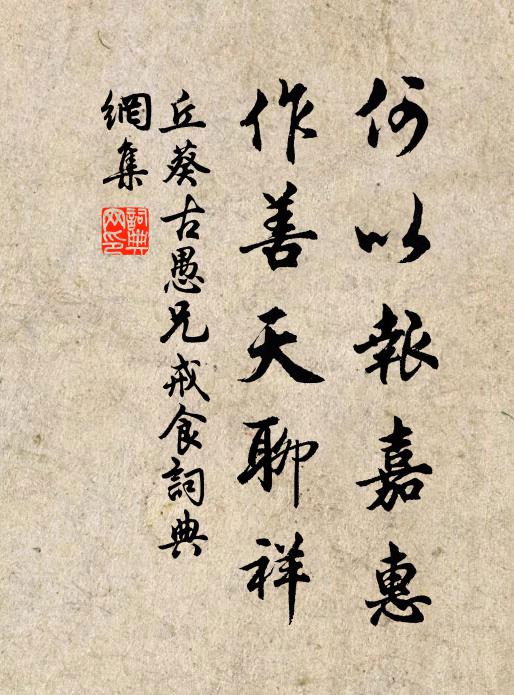 何以報嘉惠
作善天聊祥
丘葵古愚兄戒食詞典
網集
詞典
网印